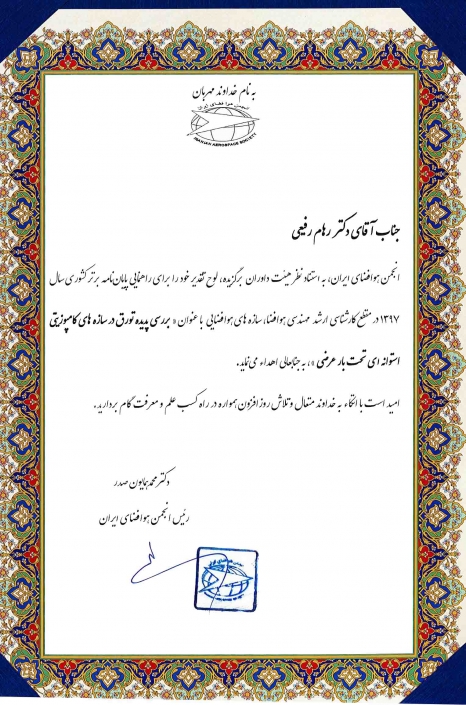 به نام خداوند مهربان
انجمن هوافضای ایران
IRANIAN AEROSPACE SOCIETY
جناب آقای دکتر رهام رفیعی
انجمن هوافضای ایران، به استناد نظر هیئت داوران برگزیده، لوح تقدیر خود را برای راهنمایی پایان‌نامه برتر کشوری سال
۱۳۹۷ در مقطع کارشناسی ارشد مهندسی هوافضا، سازه های هوافضایی با عنوان « بررسی پدیده تورق در سازه های کامپوزیتی
استوانه ای تحت بار عرضی »، به جنابعالی اهداء می‌نماید.
امید است با اتکاء به خداوند متعال و تلاش روزافزون همواره در راه کسب علم و معرفت گام بردارید.
دکتر محمد همایون صدر
رئیس انجمن هوافضای ایران